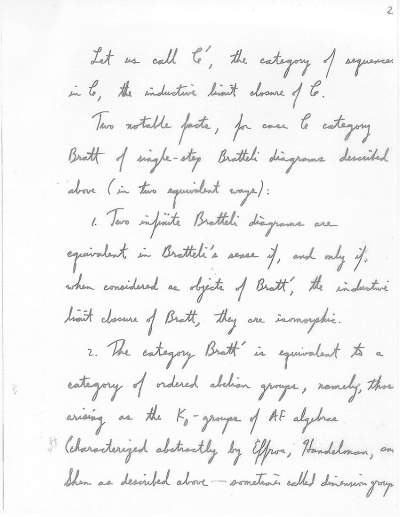 2
Let us call C', the category of sequences
in C, the inductive limit closure of C.
Two notable facts, for case C category
Bratt of single-step Bratteli diagrams described
above (in two equivalent ways):
1. Two infinite Bratteli diagrams are
equivalent in Bratteli's sense if, and only if,
when considered as objects of Bratt', the inductive
limit closure of Bratt, they are isomorphic.
2. The category Bratt' is equivalent to a
category of ordered abelian groups, namely, those
arising as the K₀-groups of AF algebras
(characterized abstractly by Effros, Handelman, an
Shen as described above — sometimes called dimension group